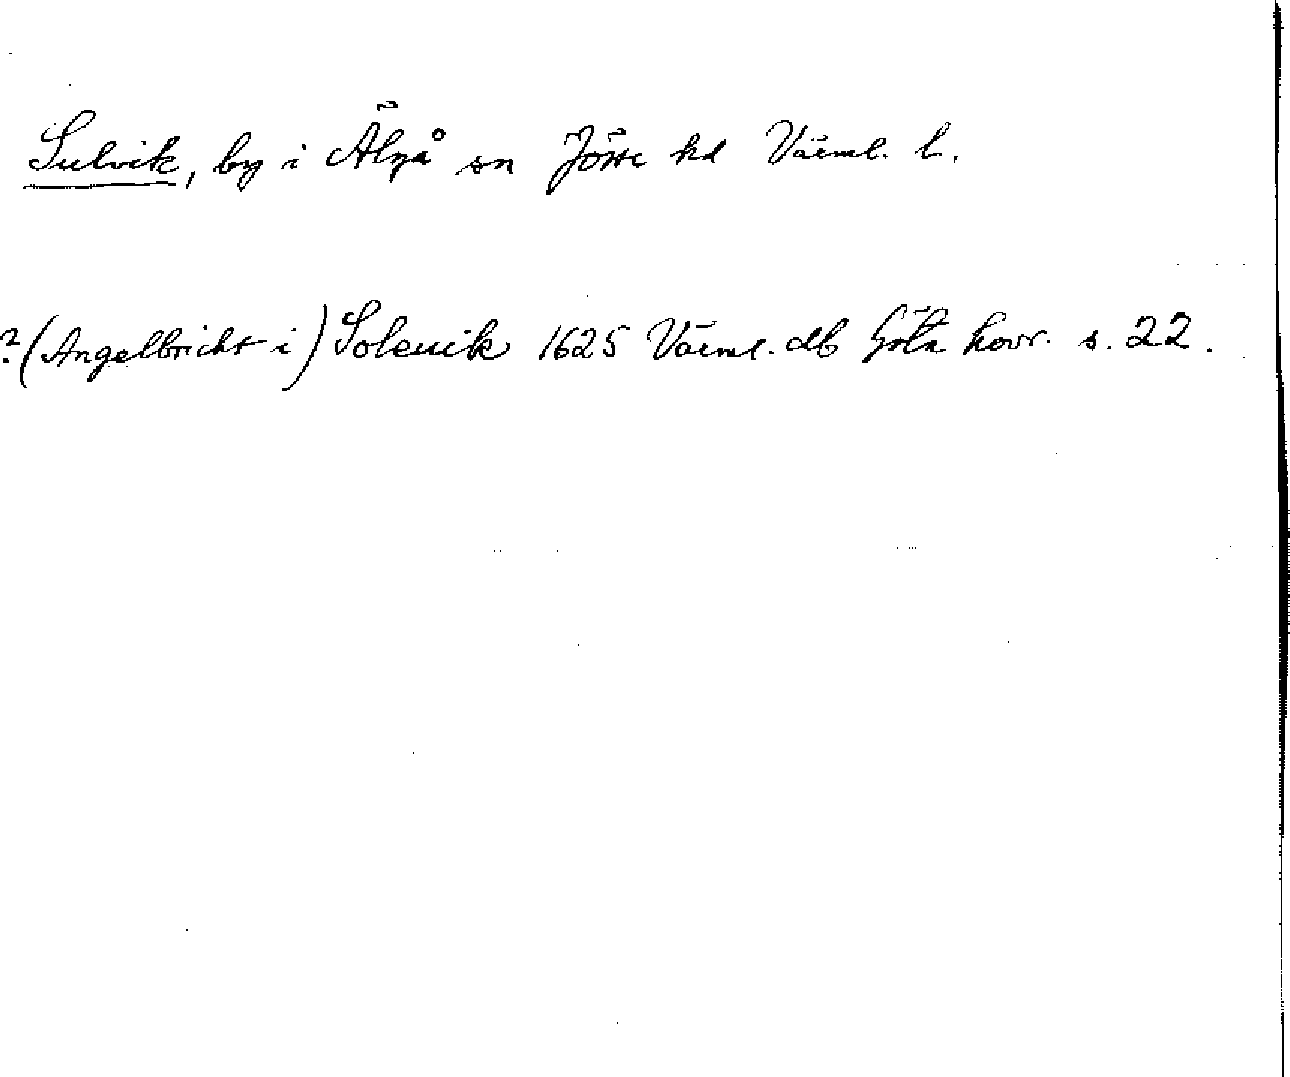 Sulvik, by i Älgå sn Jösse hd Värml. l.
? (Angelbricht i) Soleuik 1625 Värml. db Göta hovr. s. 22.